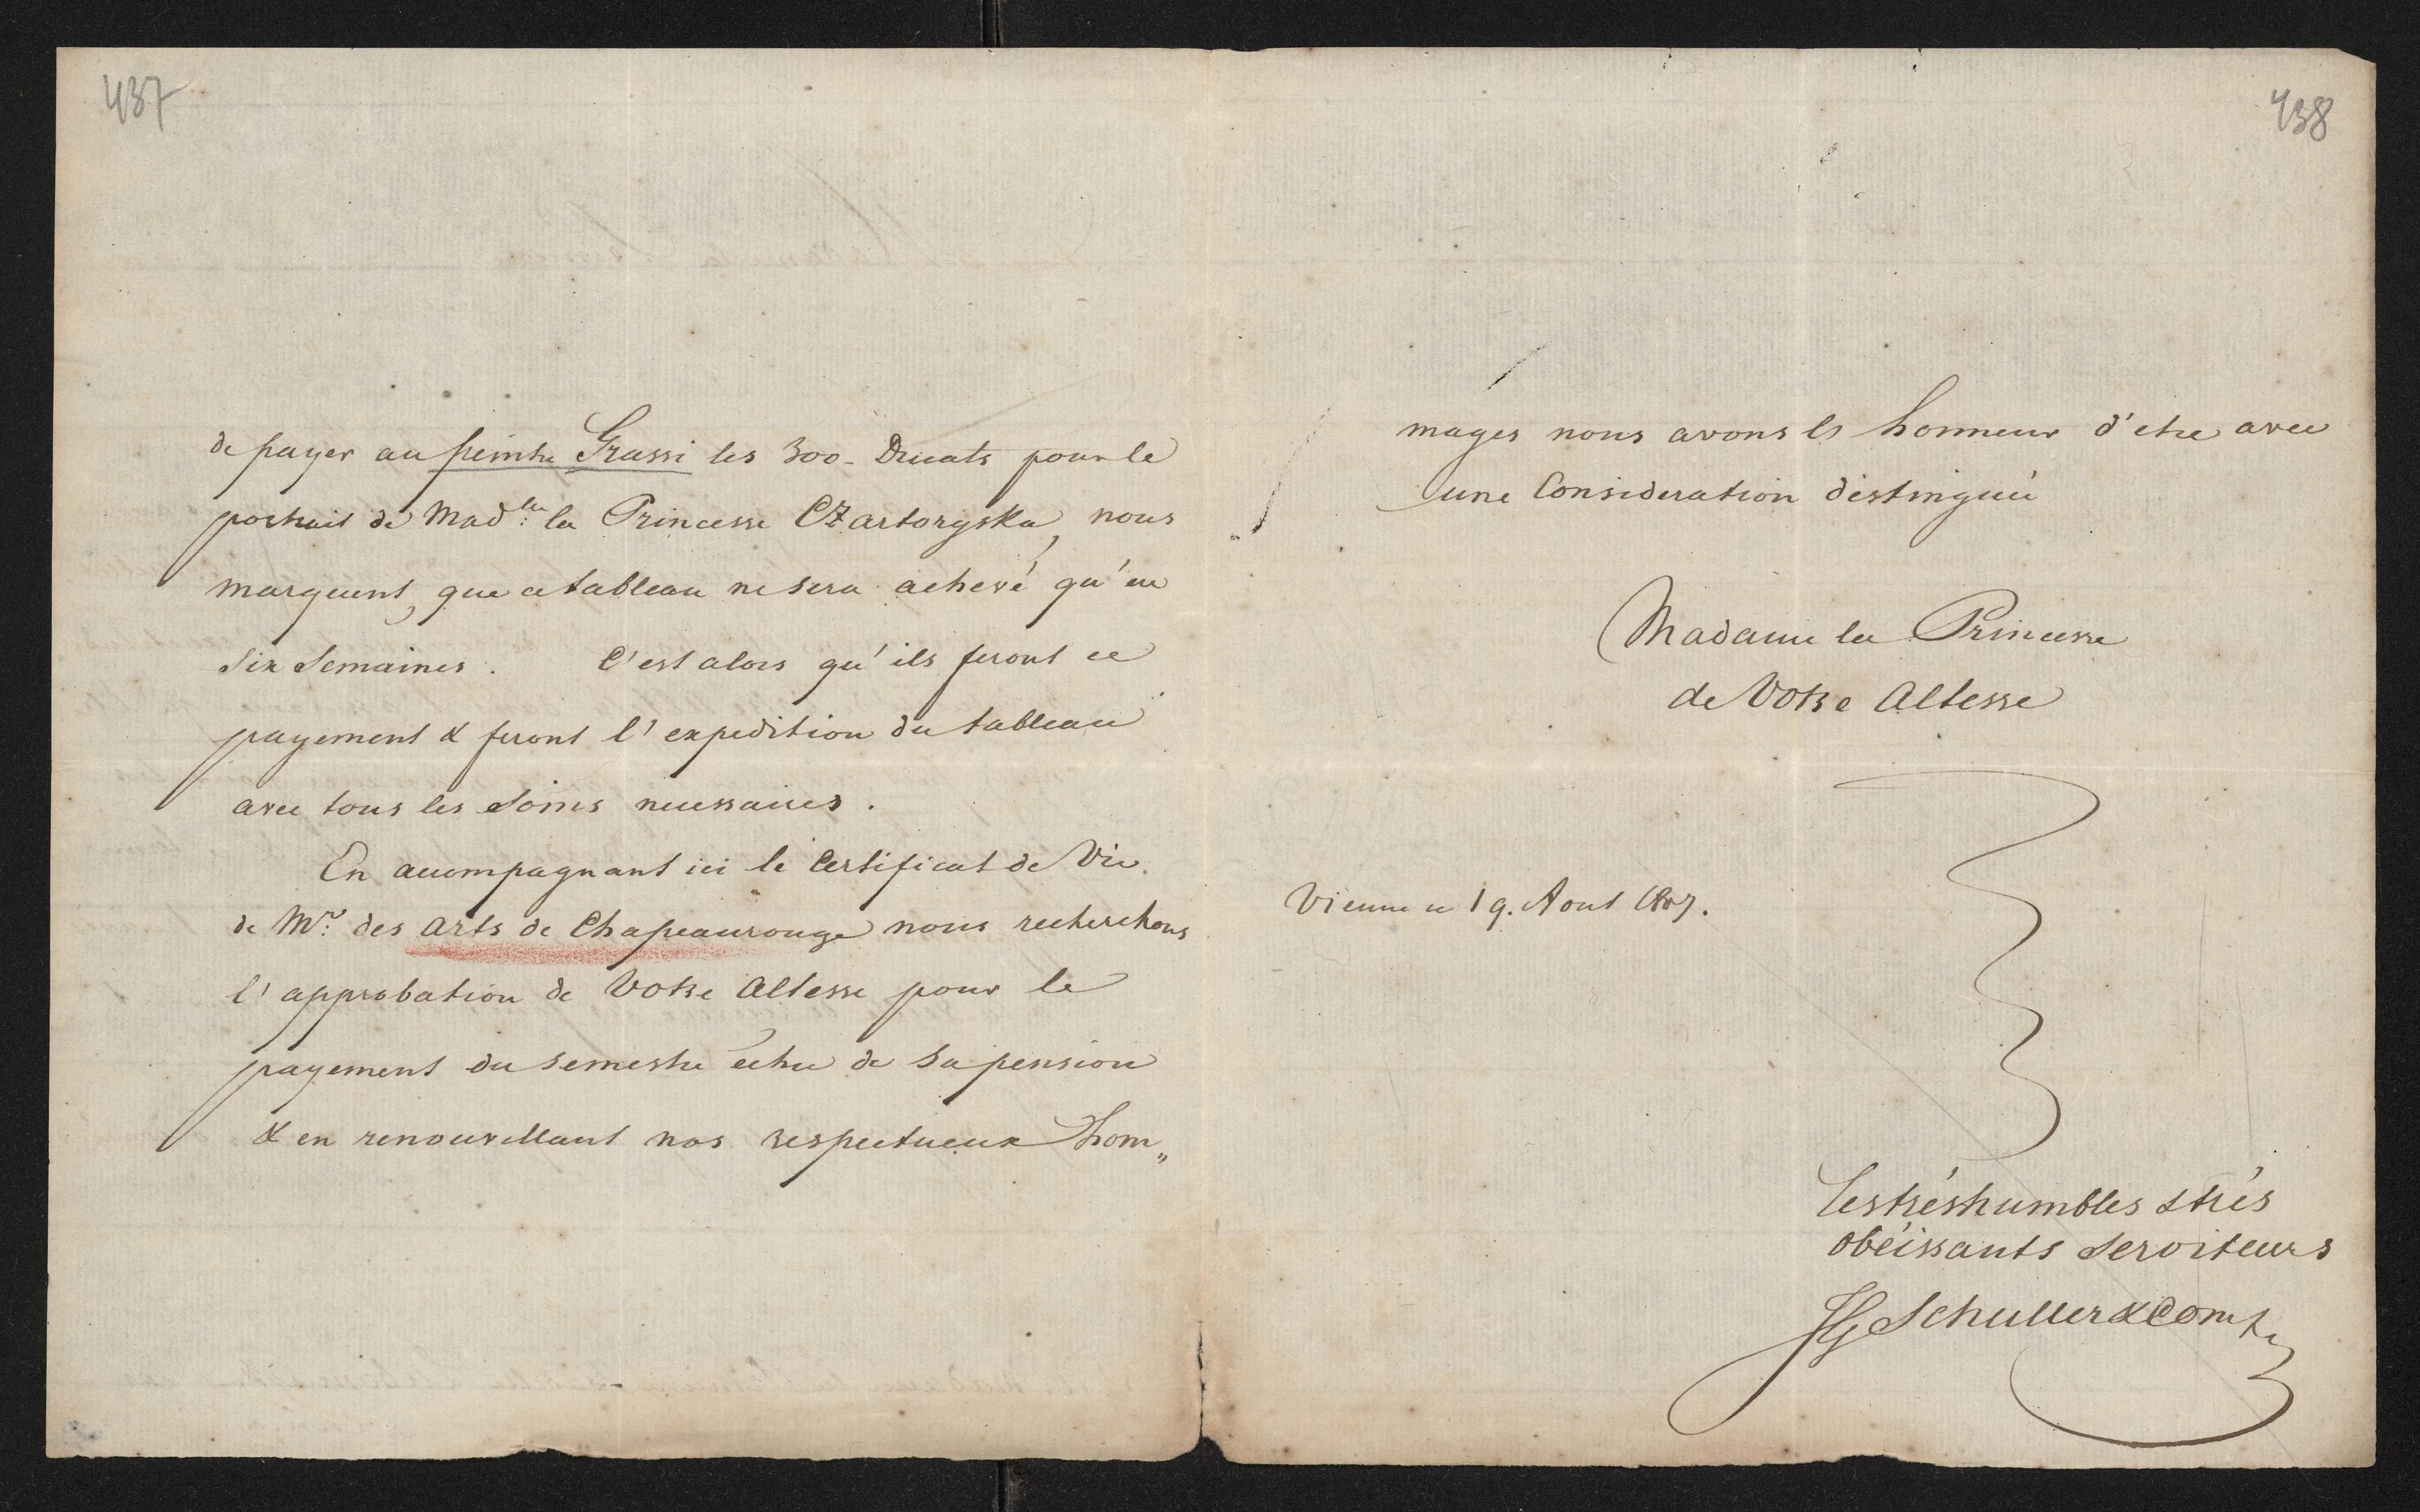 437
de payer au peintre Grassi les 300 - Ducats pour le
portrait de Mad.lle la Princesse Czartoryska, nous
marquent, que ce tableau ne sera achevé qu'en
Six Semaines. C'est alors qu'ils feront ce
payement & feront l'expedition du tableau
avec tous les Soins necessaires.
En accompagnant ici le Certificat de Vie
de Mr: des Arts de Chapeaurouge nous recherchons
l'approbation de Votre Altesse pour le
payement du semestre échu de sa pension
& en renouvellant nos respectueux hom„
438
mages nous avons l'honneur d'etre avec
une Consideration distinguée
Madame la Princesse
de Votre Altesse
Vienne ce 19. Aout 1807.
les trés humbles & trés
obéissants Serviteurs
JG Schuller & Comp